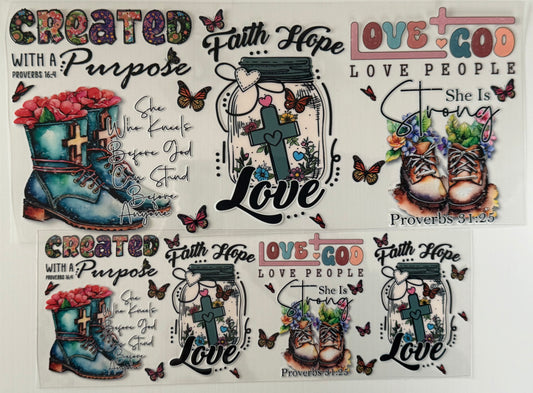 CREATED
WITH A Purpose
PROVERBS 16:4
She
Who Kneels
Before God
Can Stand
Before
Anyone
Faith Hope
Love
LOVE GOD
LOVE PEOPLE
She Is
Strong
Proverbs 31:25
CREATED
WITH A Purpose
PROVERBS 16:4
She
Who Kneels
Before God
Can Stand
Before
Anyone
Faith Hope
Love
LOVE GOD
LOVE PEOPLE
She Is
Strong
Proverbs 31:25
Faith Hope
Love